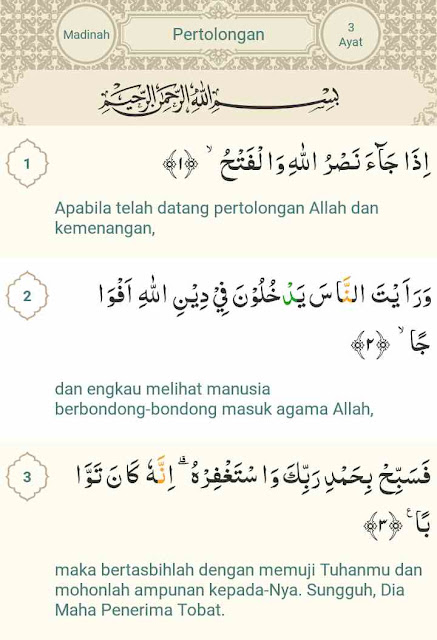 Madinah
Pertolongan
3
Ayat
بِسْمِ اللّٰهِ الرَّحْمٰنِ الرَّحِيْمِ
1
اِذَا جَآءَ نَصْرُ اللّٰهِ وَالْفَتْحُ ۙ ﴿١﴾
Apabila telah datang pertolongan Allah dan
kemenangan,
2
وَرَاَيْتَ النَّاسَ يَدْخُلُوْنَ فِيْ دِيْنِ اللّٰهِ اَفْوَا
جًا ۙ ﴿٢﴾
dan engkau melihat manusia
berbondong-bondong masuk agama Allah,
3
فَسَبِّحْ بِحَمْدِ رَبِّكَ وَاسْتَغْفِرْهُ ۗ اِنَّهٗ كَانَ تَوَّا
بًا ࣖ ﴿٣﴾
maka bertasbihlah dengan memuji Tuhanmu dan
mohonlah ampunan kepada-Nya. Sungguh, Dia
Maha Penerima Tobat.